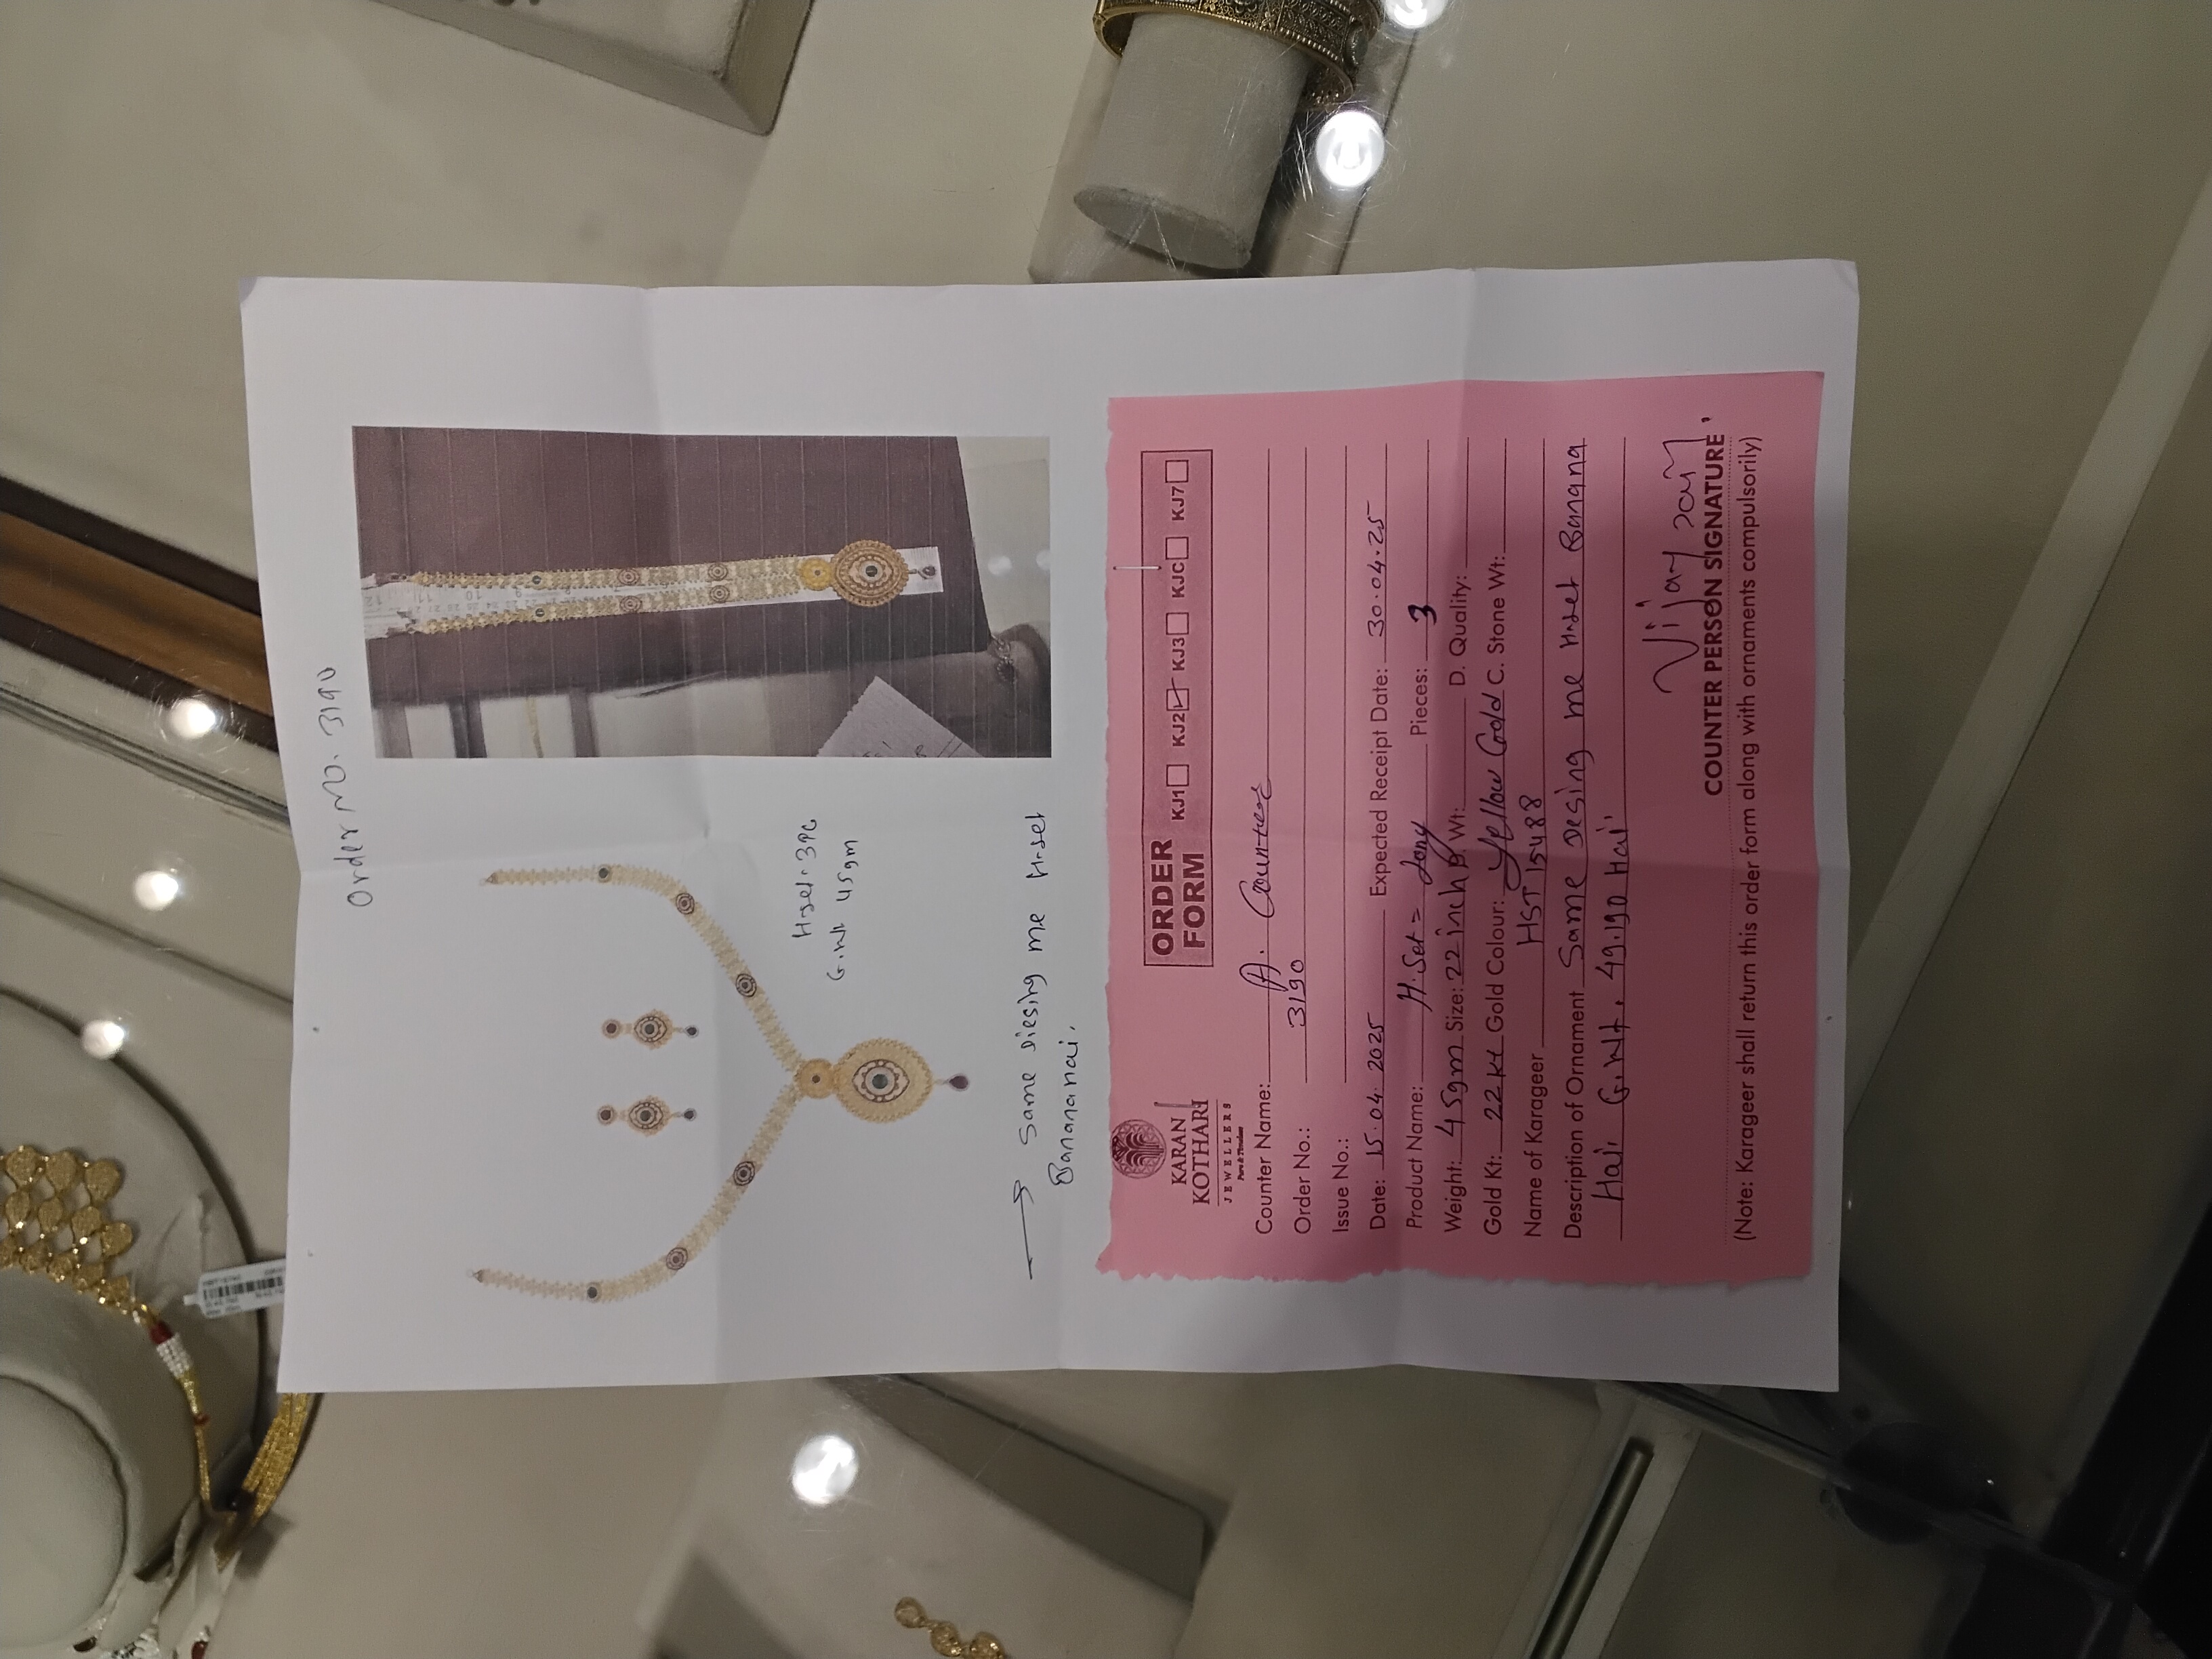 Order No. 3190
H.set = 3Pc
G.Wt 45gm
Same Diesing me H.set
Banana nai.
KARAN
KOTHARI
JEWELLERS
ORDER
FORM
KJ1 KJ2 ✓ KJ3 KJC KJ7
Counter Name: A. Counter
Order No.: 3190
Issue No.:
Date: 15.04.2025 Expected Receipt Date: 30.04.25
Product Name: H.Set = Long Pieces: 3
Weight: 45gm Size: 22 inch P. Wt: D. Quality:
Gold Kt: 22 kt Gold Colour: Yellow Gold C. Stone Wt:
Name of Karageer HST 15488
Description of Ornament Same Desing me H.set Banana
Hai G.Wt. 49.190 Hai
COUNTER PERSON SIGNATURE
(Note: Karageer shall return this order form along with ornaments compulsorily)